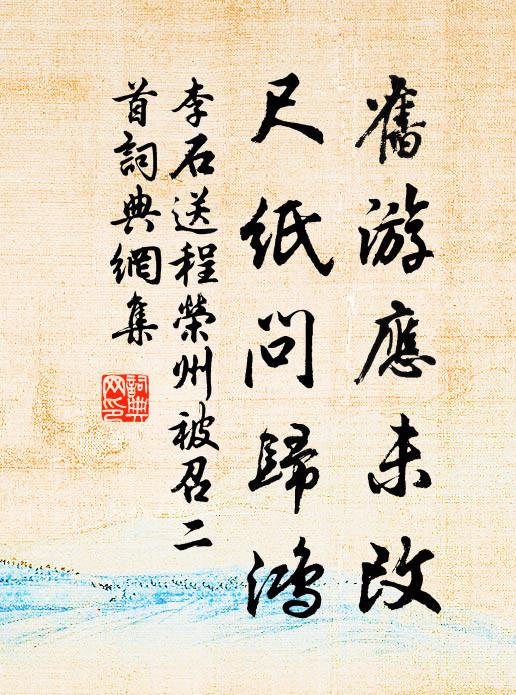 舊游應未改
尺紙問歸鴻
李石送程榮州被召二
首詞典網集
詞典網印